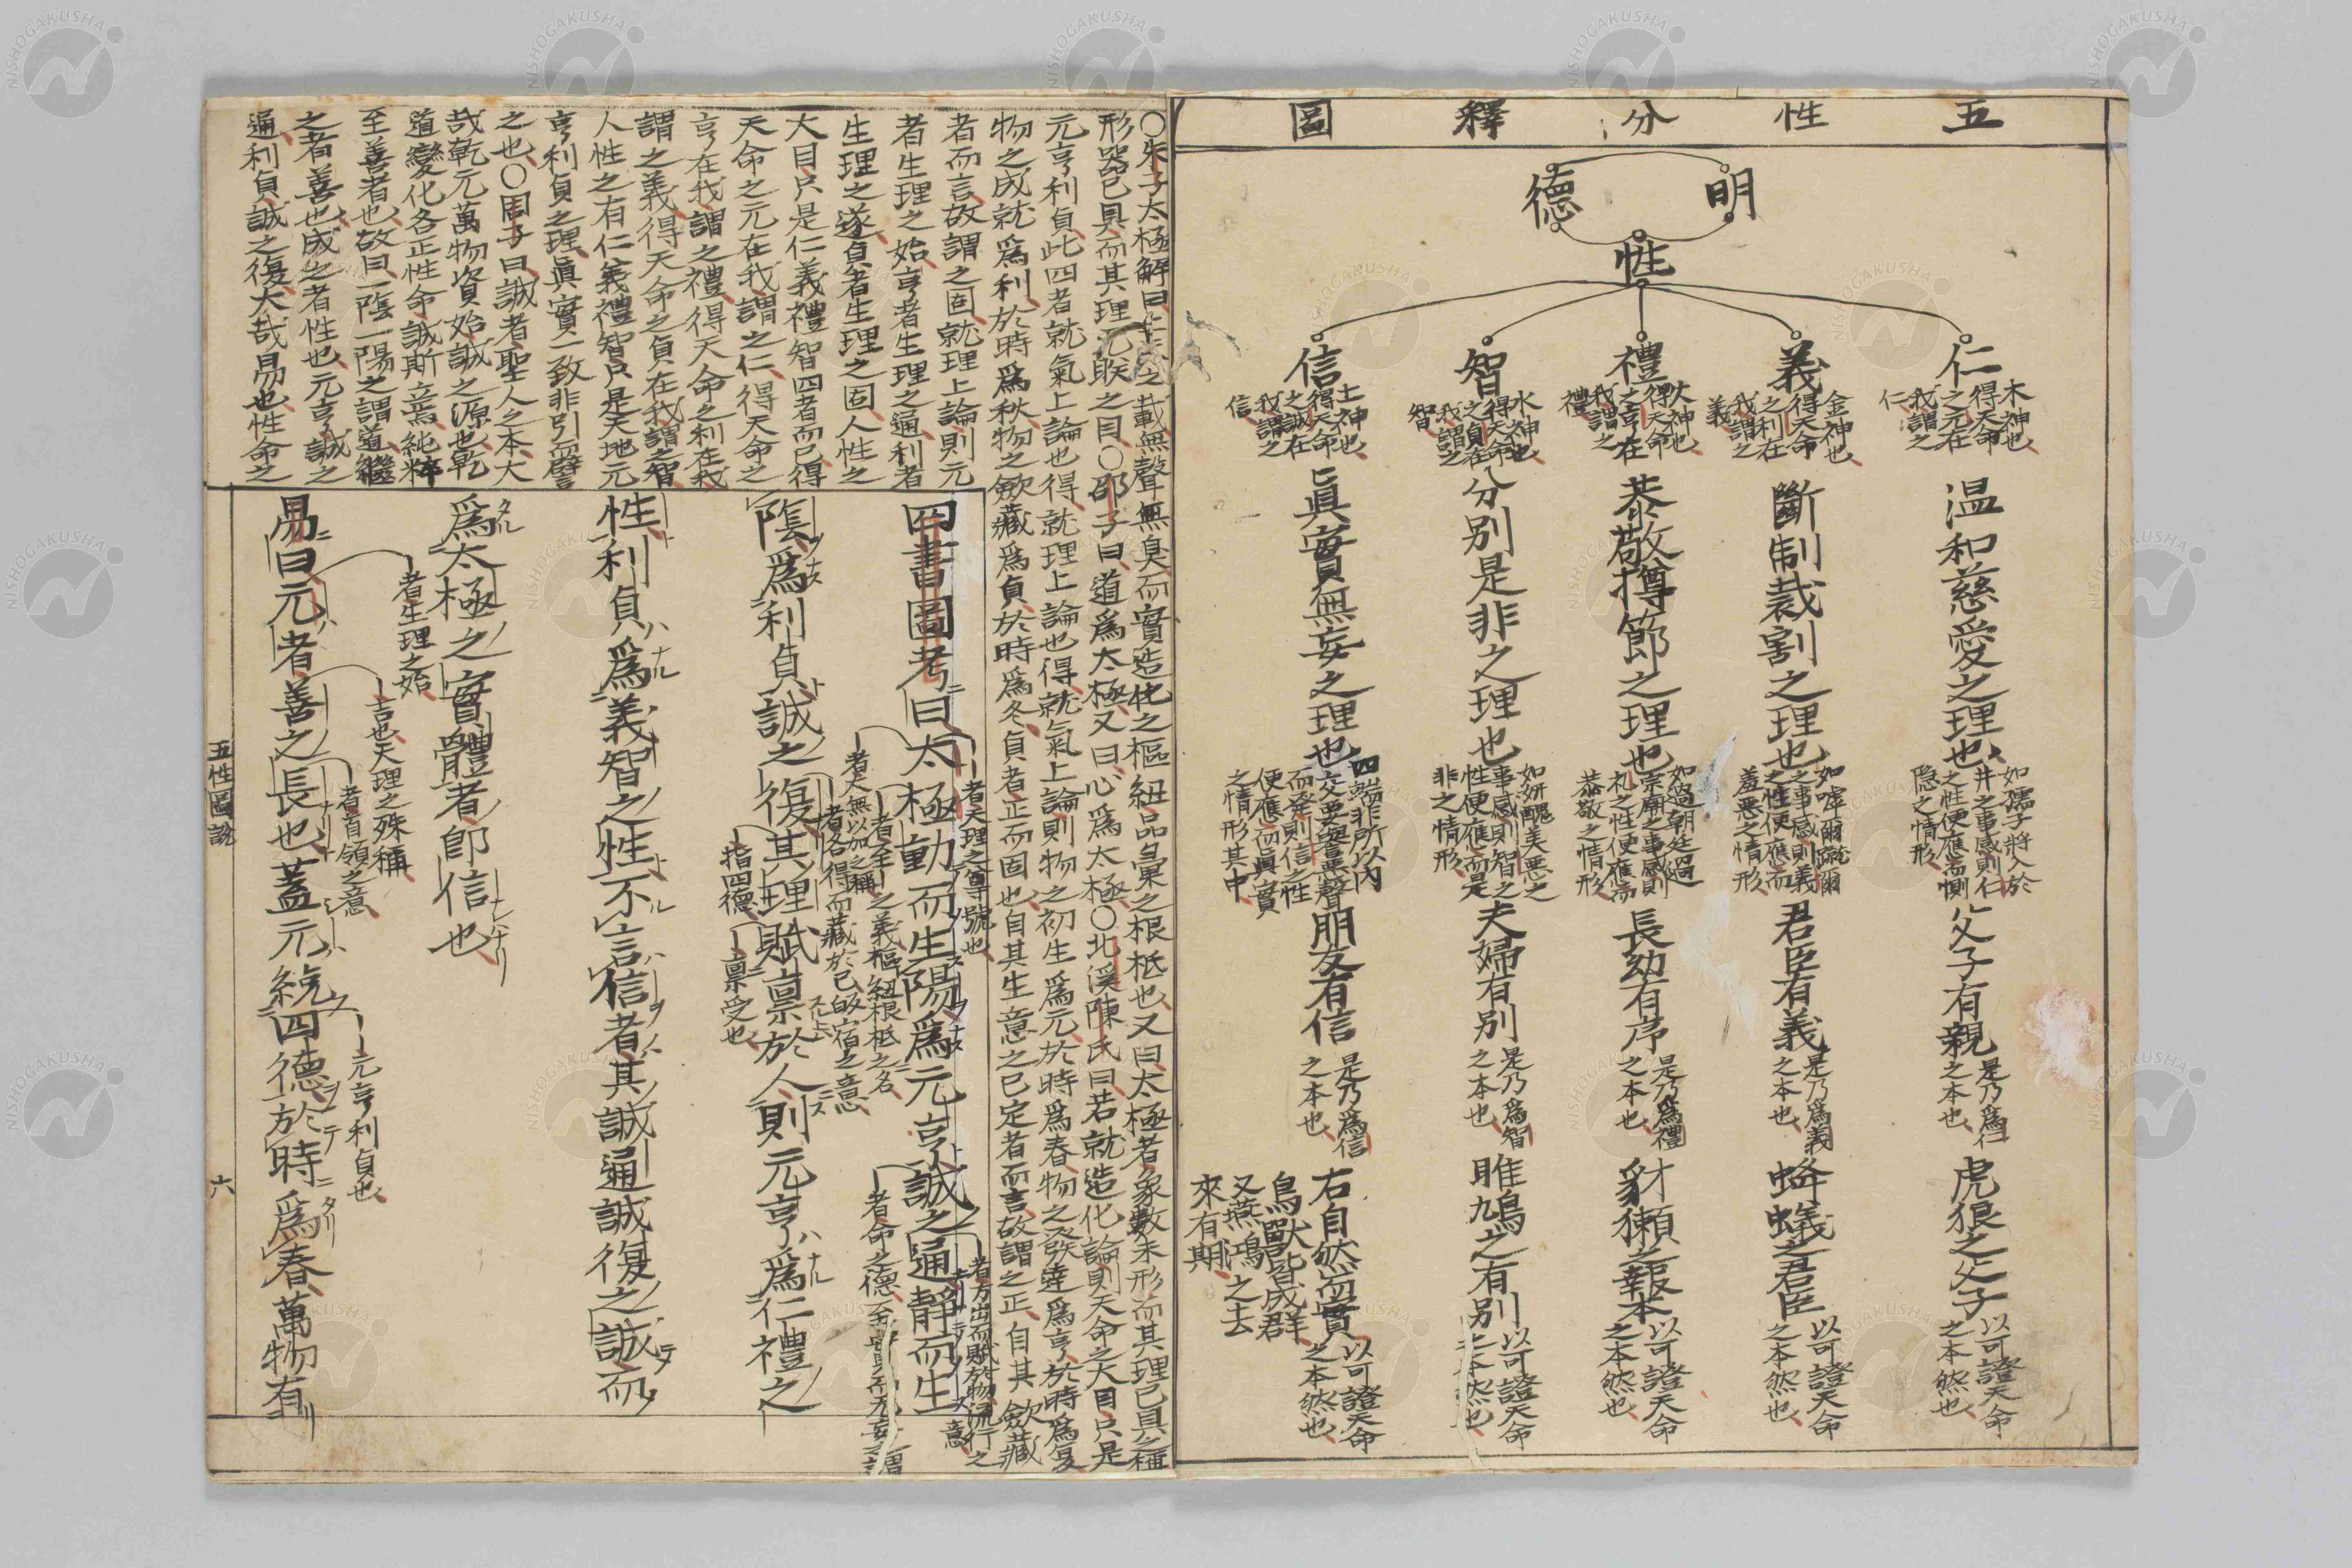 五性分釋圖
明德
性
仁
木神也
得天命
之元在
我謂之
仁
溫和慈愛之理也
如孺子將入於
井之事感則仁
之性便應而惻
隠之情形
父子有親
是乃爲仁
之本也
虎狼之父子
以可證天命
之本然也
義
金神也
得天命
之利在
我謂之
義
斷制裁割之理也
如嘑爾蹴爾
之事感則義
之性便應而
羞惡之情形
君臣有義
是乃爲義
之本也
蜂蟻之君臣
以可證天命
之本然也
禮
火神也
得天命
之亨在
我謂之
禮
恭敬撙節之理也
如過朝廷過
宗廟之事感則
礼之性便應而
恭敬之情形
長幼有序
是乃爲禮
之本也
豺獺之報本
以可證天命
之本然也
智
水神也
得天命
之貞在
我謂之
智
分別是非之理也
如妍醜美惡之
事感則智之
性便應而是
非之情形
夫婦有別
是乃爲智
之本也
雎鳩之有別
以可證天命
之本然也
信
土神也
得天命
之誠在
我謂之
信
眞實無妄之理也
四端非所以內
交要譽惡聲
而發則信之性
便應而眞實
之情形其中
朋友有信
是乃爲信
之本也
右自然而實
以可證天命
之本然也
鳥獸皆成群
又燕鴻之去
來有期
〇朱子太極解曰上天之載無聲無臭而實造化之樞紐品彙之根柢也又曰太極者象數未形而其理已具之稱
形器已具而其理无眹之目〇邵子曰道爲太極又曰心爲太極〇北溪陳氏曰若就造化論則天命之大目只是
元亨利貞此四者就氣上論也得就理上論也得就氣上論則物之初生爲元於時爲春物之發達爲亨於時爲夏
物之成就爲利於時爲秋物之斂藏爲貞於時爲冬貞者正而固也自其生意之已定者而言故謂之正自其斂藏
者而言故謂之固就理上論則元
者生理之始亨者生理之通利者
生理之遂貞者生理之固人性之
大目只是仁義禮智四者而已得
天命之元在我謂之仁得天命之
亨在我謂之禮得天命之利在我
謂之義得天命之貞在我謂之智
人性之有仁義禮智只是天地元
亨利貞之理眞實一致非引而譬
之也〇周子曰誠者聖人之本大
哉乾元萬物資始誠之源也乾
道變化各正性命誠斯立焉純粹
至善者也故曰一陰一陽之謂道繼
之者善也成之者性也元亨誠之
通利貞誠之復大哉易也性命之
四書圖考曰太極動而生陽爲元亨誠之通靜而生
者天理之尊號也
者方出而賦於物流行之意
者大無以加之稱
者至之義樞紐根柢之名
者命之德至實而无妄之謂
陰爲利貞誠之復其理賦稟於人則元亨爲仁禮之
者各得而藏於己皈宿之意
指四德
稟受也
性利貞爲義智之性不言信者其誠通誠復之誠而
爲太極之實體者卽信也
者生理之始
吉也天理之殊稱
者首領之意
元亨利貞也
易曰元者善之長也蓋元統四德於時爲春萬物有
五性圖說
六